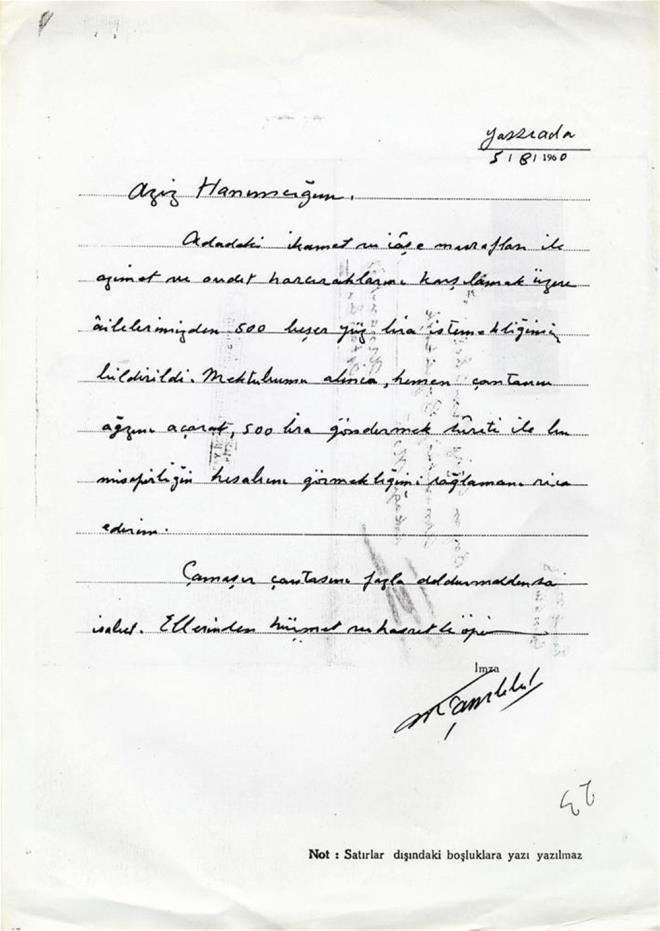 Yassıada
5/8/1960
Aziz Hanımcığım.
Adadaki ikamet ve iâşe masrafları ile
azimet ve avdet harcırahlarını karşılamak üzere
âilelerimizden 500 beşer yüz lira istemekliğimiz
bildirildi. Mektubumu alınca, hemen çantanın
ağzını açarak, 500 lira göndermek sûreti ile bu
misafirliğin hesabını görmekliğimi sağlamanı rica
ederim.
Çamaşır çantasını fazla doldurmaddensa
isabet. Ellerinden hürmet ve hasretle öperim
İmza
22
Not : Satırlar dışındaki boşluklara yazı yazılmaz